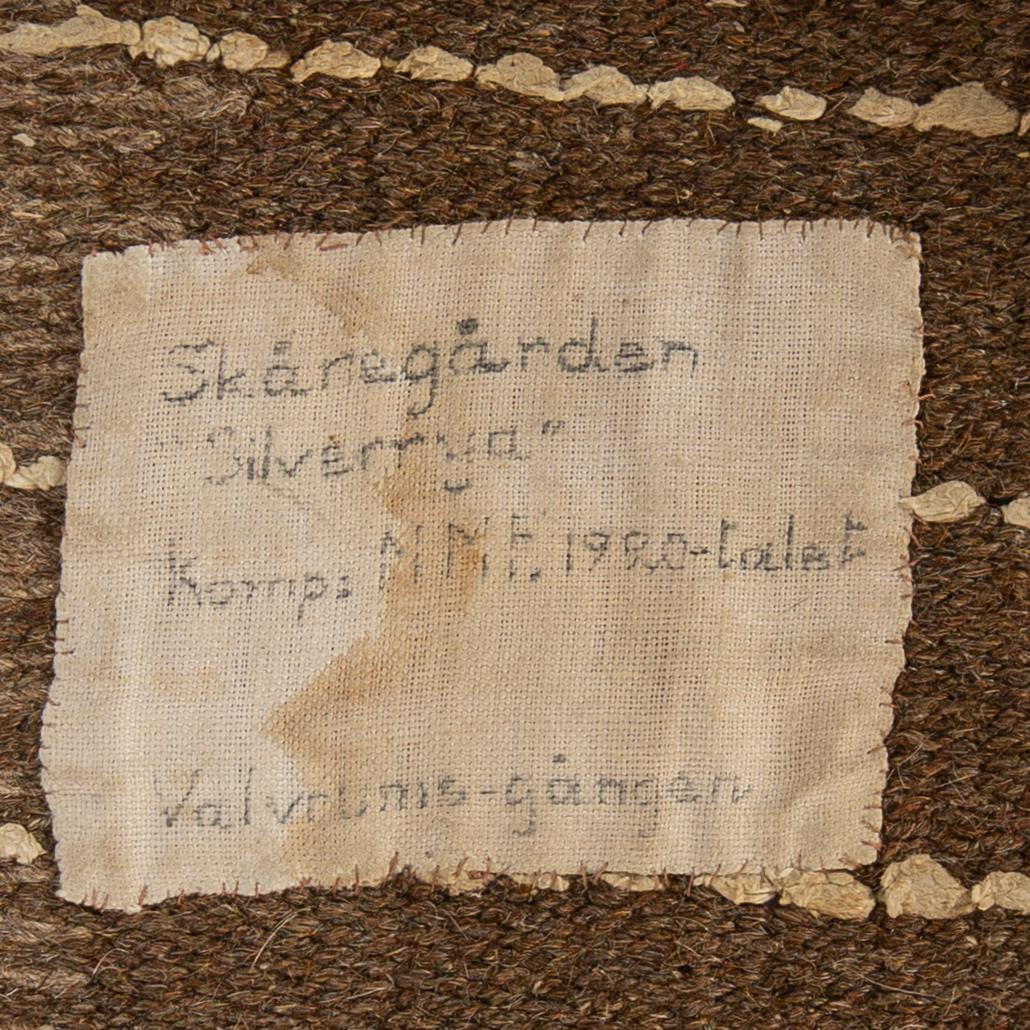 Skåregården
"Silverrya"
Komp: MMF. 1920-talet
Valvrums-gången